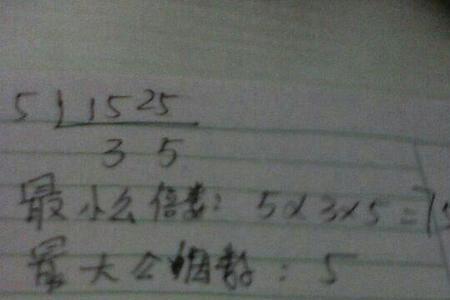 5 15 25
3 5
最小公倍数: 5×3×5=75
最大公因数: 5